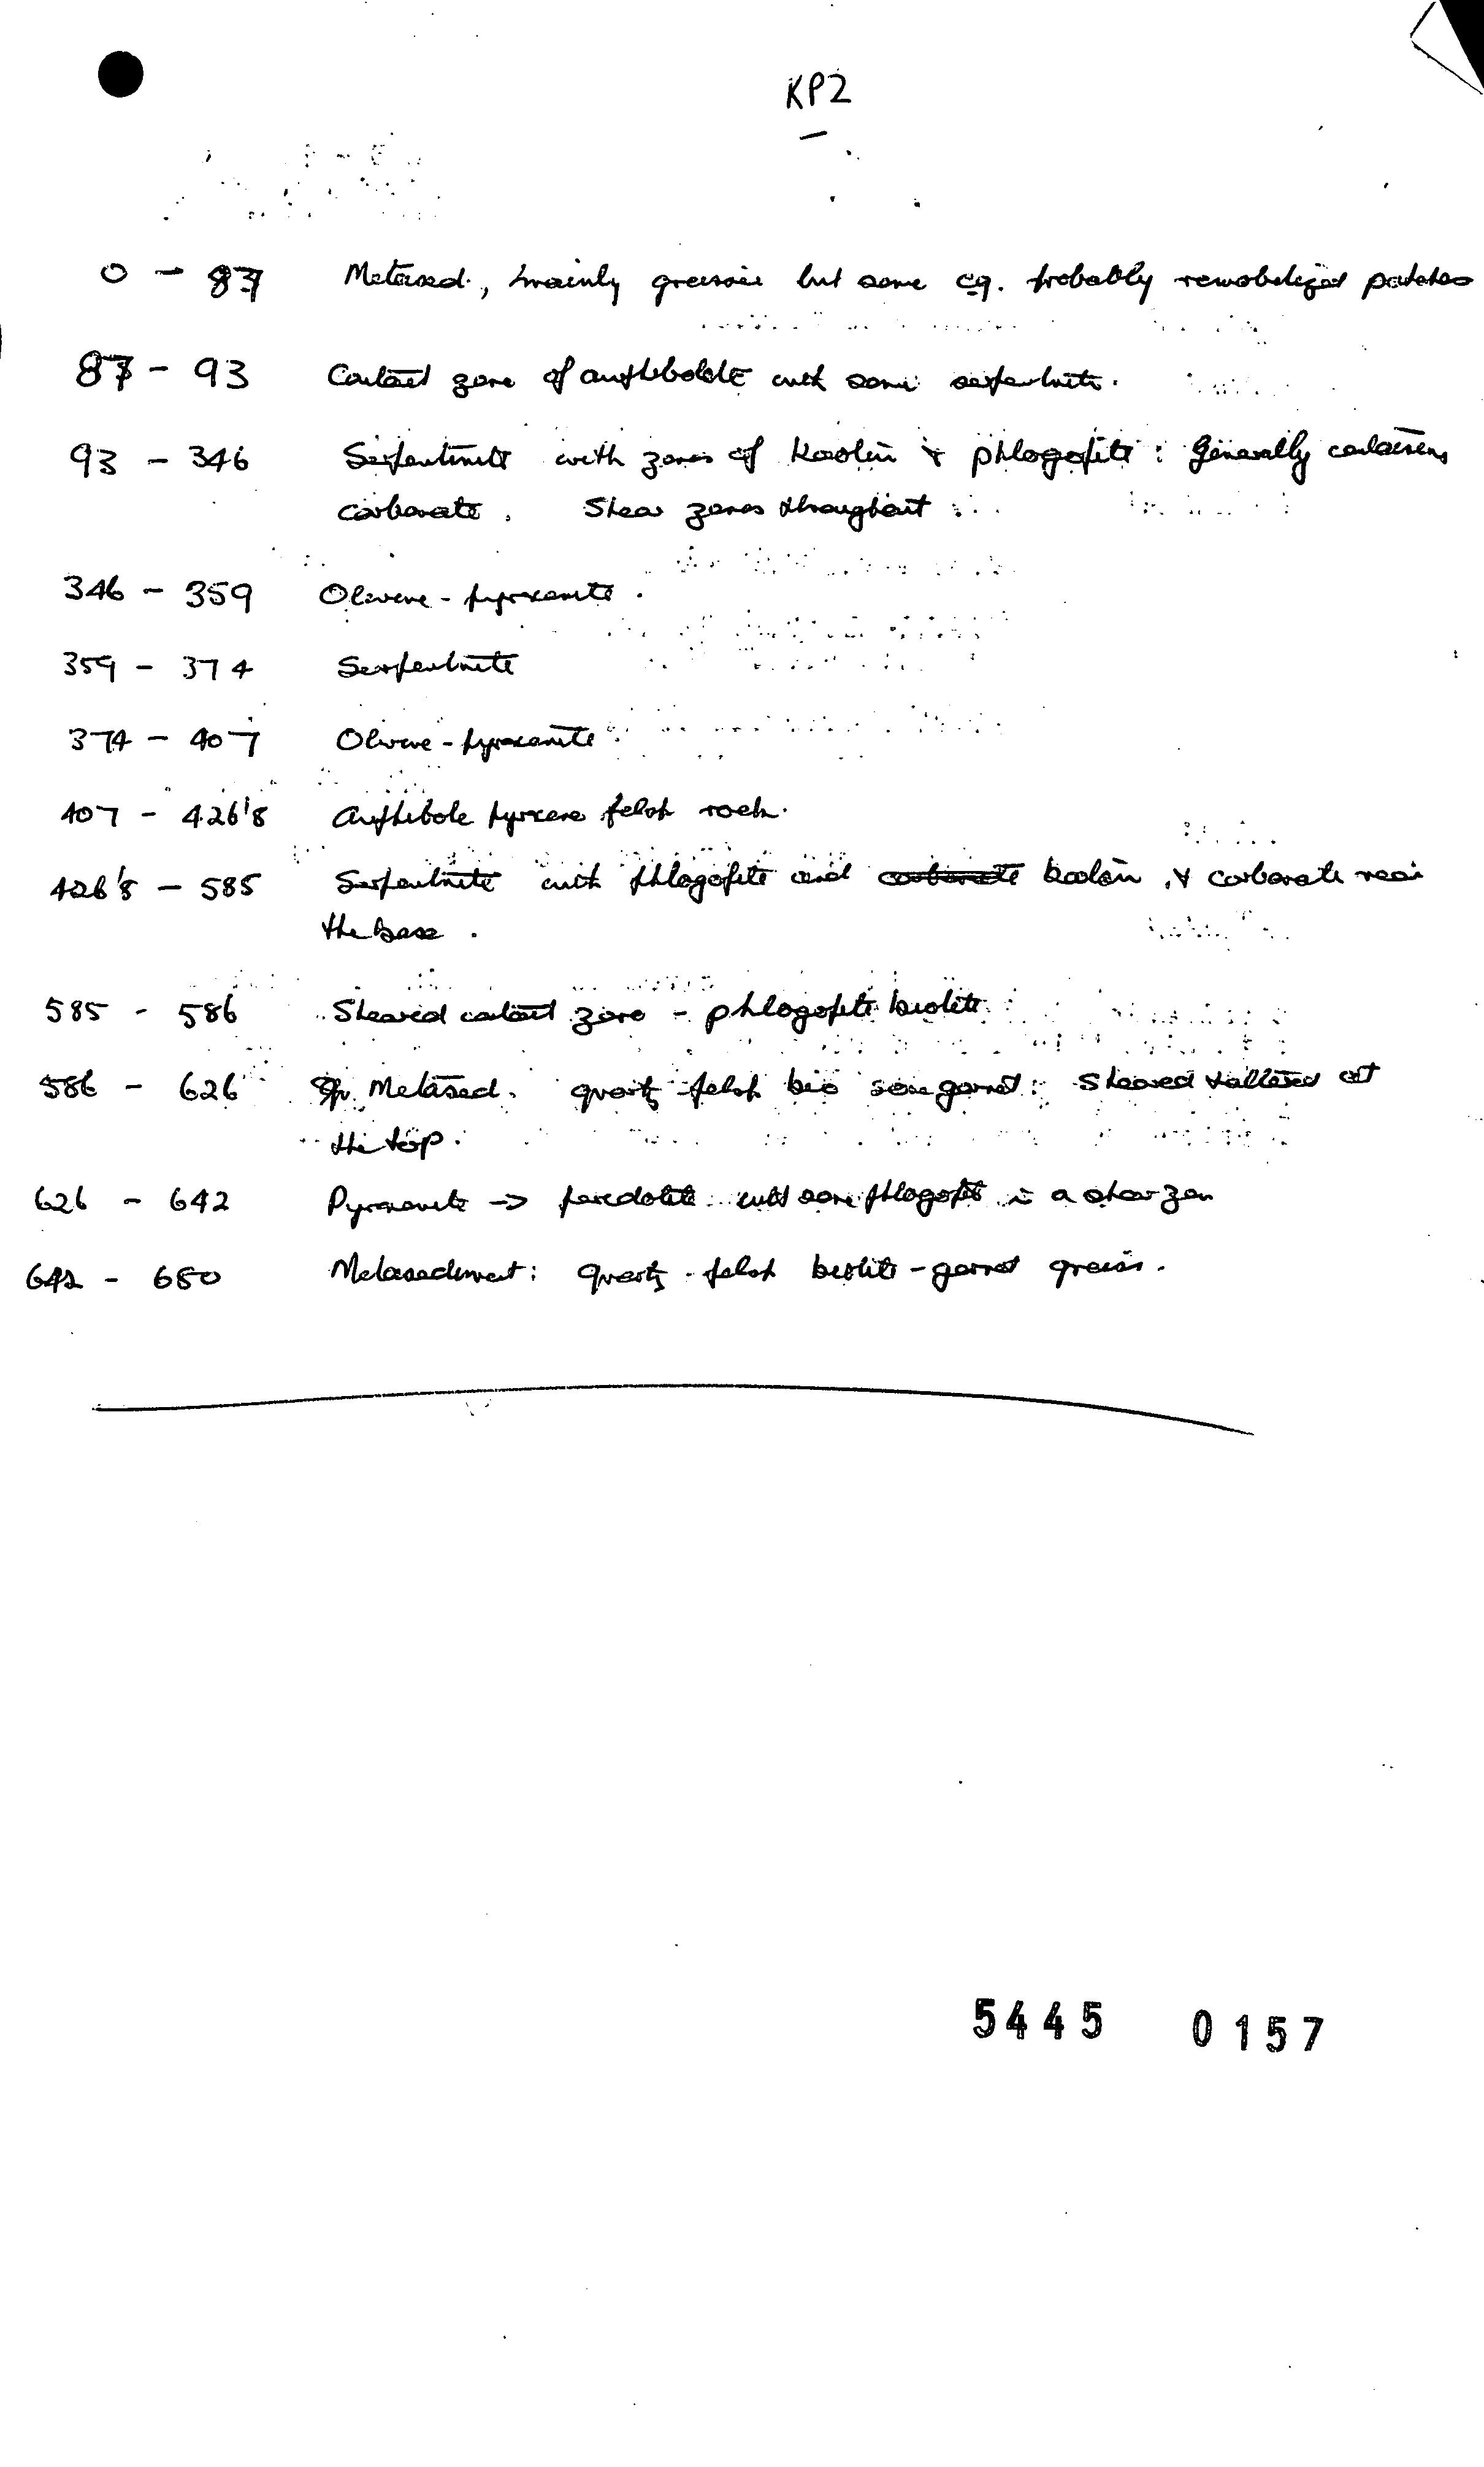 KP2
0 - 87 Metased., mainly gneissic but some cg. probably remobilized patches
87 - 93 Contact zone of amphibolite with some serpentinite.
93 - 346 Serpentinite with zones of Kaolin & phlogopite : Generally contains
carbonate. Shear zones throughout.
346 - 359 Olivine - pyroxenite.
359 - 374 Serpentinite
374 - 407 Olivine - pyroxenite
407 - 426'8 Amphibole pyroxene felsp rock.
426'8 - 585 Serpentinite with phlogopite and carbonate kaolin, & carbonate near
the base.
585 - 586 Sheared contact zone - phlogopite biotite
586 - 626 Metased. quartz felsp bio some garnet: Sheared & altered at
the top.
626 - 642 Pyroxenite -> peridotite with some phlogopite in a shear zone
642 - 650 Metasediment: quartz - felsp biotite - garnet gneiss.
5445 0157